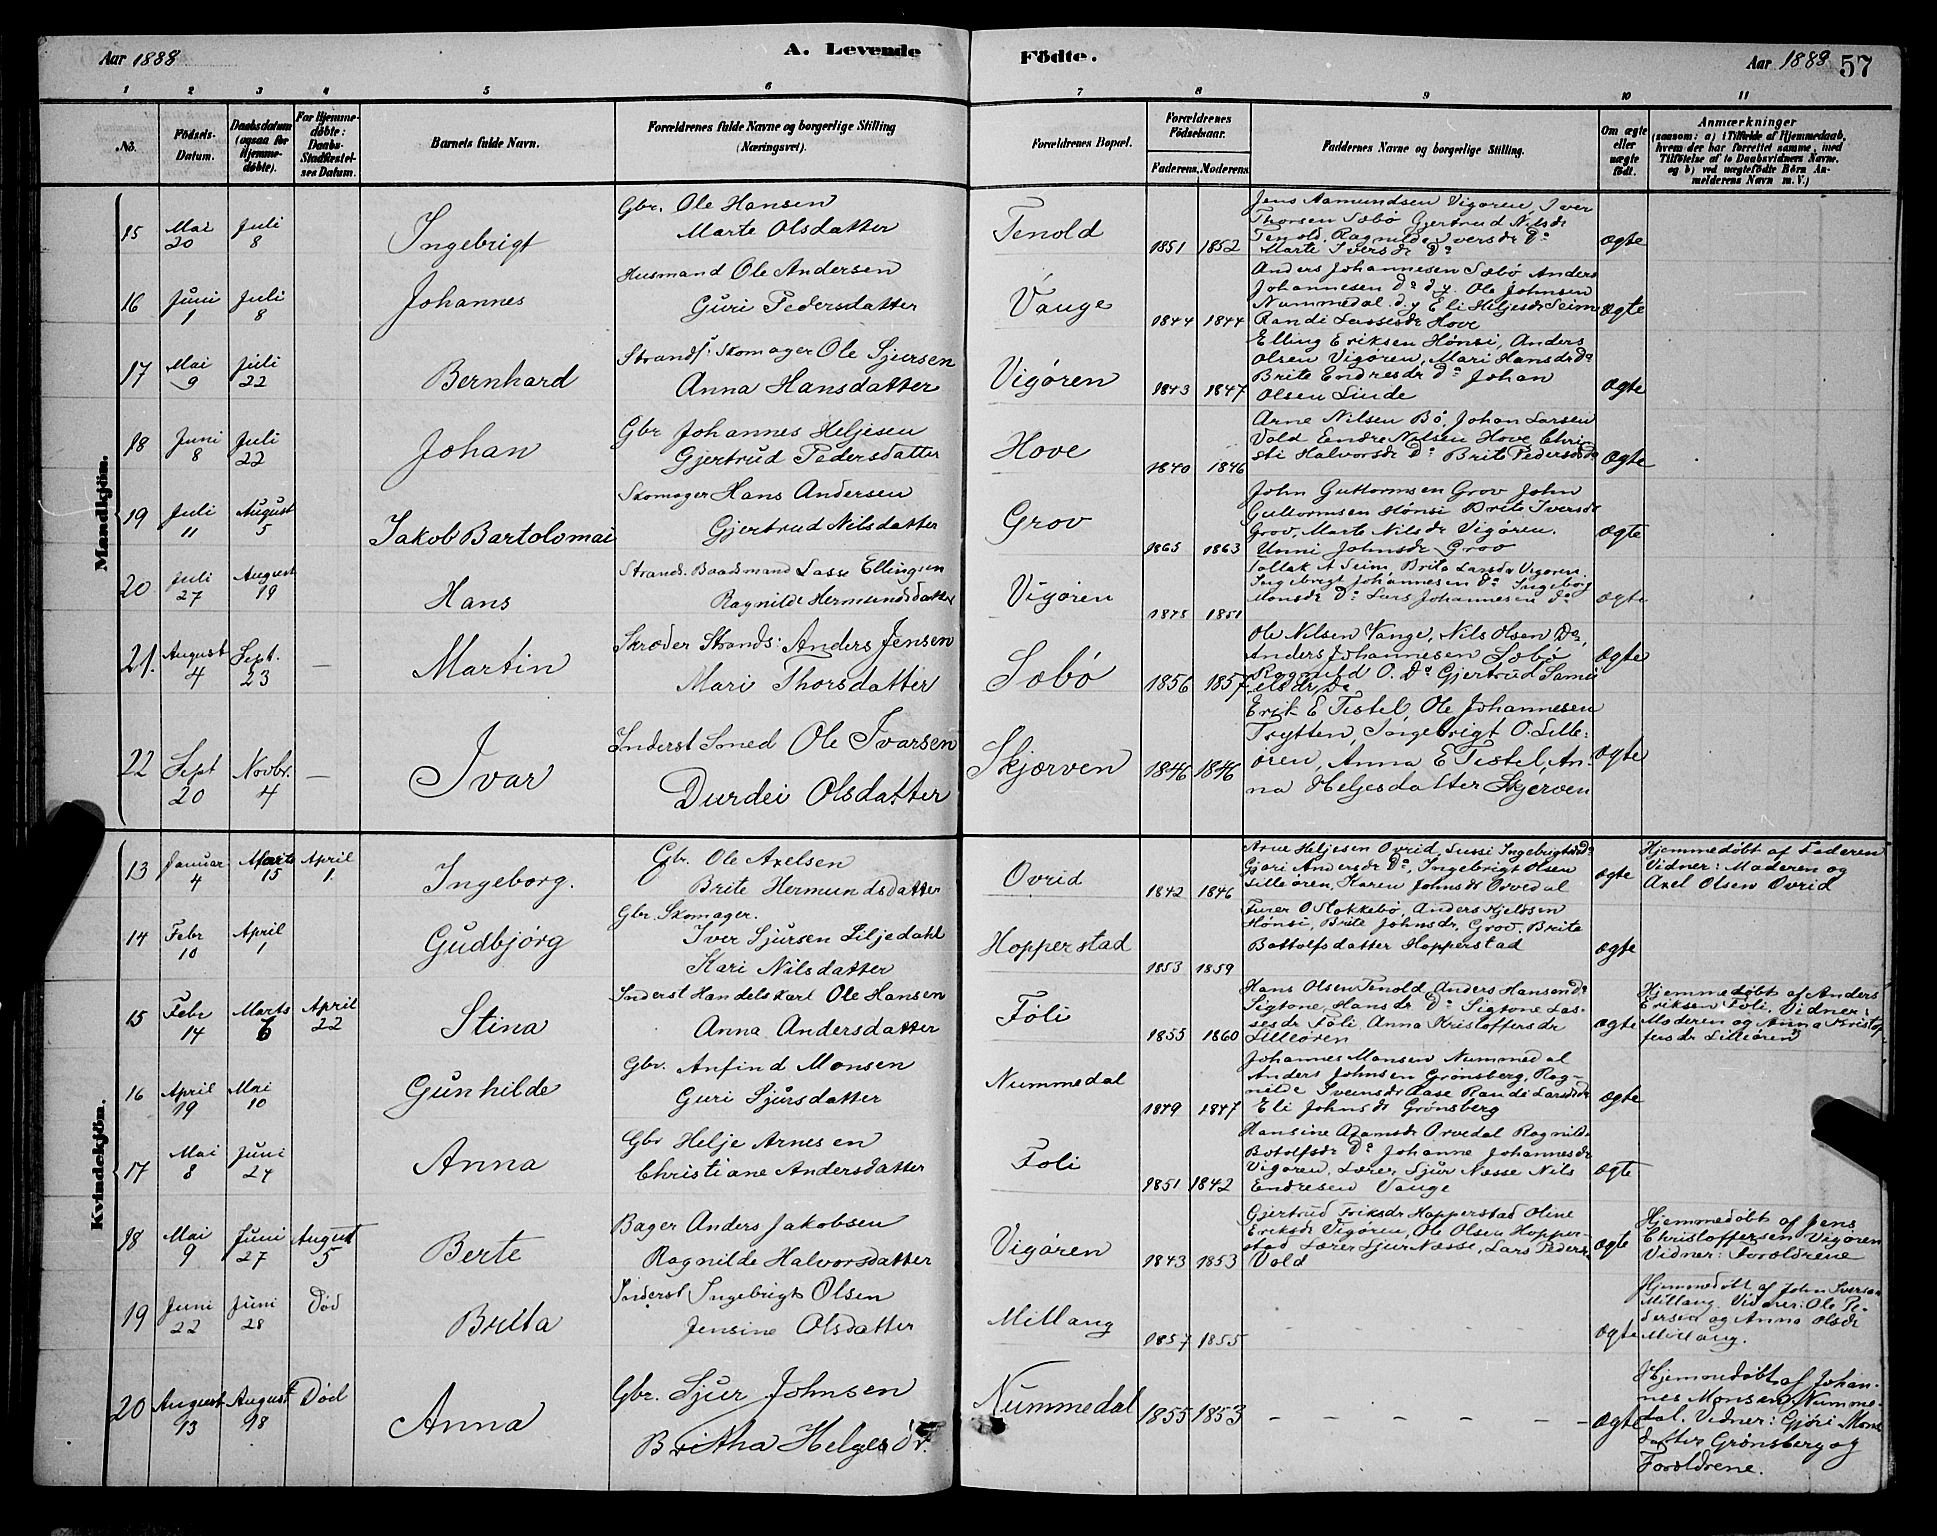 Aar 1888
A. Levende
Födte.
Aar 1888
57
1 2 3 4 5 6 7 8 9 10 11
No.
Födsels-Datum.
Daabsdatum (ogsaa for Hjemme-döbte).
For Hjemme-döbte: Daabs-Stadfæstel-ses Datum.
Barnets fulde Navn.
Forældrenes fulde Navne og borgerlige Stilling (Næringsvei).
Forældrenes Bopæl.
Forældrenes Födselsaar.
Faderens. Moderens.
Faddernes Navne og borgerlige Stilling.
Om ægte eller uægte födt.
Anmærkninger
(saasom: a) i Tilfælde af Hjemmedaab,
hvem der har forrettet samme, med
Tilföielse af to Daabsvidners Navne,
og b) ved uægtefödte Börn An-
melderens Navn m. V.)
Mandkjön.
15 Mai 20 Juli 8 Ingebrigt
Gbr. Ole Hansen
Marte Olsdatter
Tenold 1851 1852
Jens Aamundsen Vigøren, Iver
Thorsen Sæbø Gjertrud Nilsdr
Tenold. Ragnilde Iversdr Do
Marte Iversdr Do
ægte
16 Juni 1 Juli 8 Johannes
Husmand Ole Andersen
Guri Pedersdatter
Vange 1844 1844
Anders Johannesen Sæbø Anders
Johannesen Do d.y. Ole Johnsen
Nummedal d.y Eli Heljesdr Seim
Randi Lassesdr Hove
ægte
17 Mai 9 Juli 22 Bernhard
Strands. Skomager Ole Sjursen
Anna Hansdatter
Vigøren 1843 1847
Elling Eriksen Hønsi, Anders
Olsen Vigøren, Mari Hansdr Do
Brite Endresdr Do Johan
Olsen Linde
ægte
18 Juni 8 Juli 22 Johan
Gbr Johannes Heljesen
Gjertrud Pedersdatter
Hove 1840 1846
Arne Nilsen Bø, Johan Larsen
Vold Endre Nilsen Hove Chri-
sti Halvorsdr Do Brite Pedersdr Do
ægte
19 Juli 11 August 5 Jakob Bartolomai
Skomager Hans Andersen
Gjertrud Nilsdatter
Grov 1865 1863
John Guttormsen Grov John
Guttormsen Hønsi Brite Iversdr
Grov, Marte Nilsdr Vigøren.
Unni Johnsdr Grov
ægte
20 Juli 27 August 19 Hans
Strands. Baadsmand Lasse Ellingsen
Ragnilde Hermundsdatter
Vigøren 1851
Tollak A Seim, Brita Larsdr Vigøren
Ingebrigt Johannesen Do Ingeborg
Monsdr Do Lars Johannesen Do
ægte
21. August 4 Sept. 23 — Martin
Skræder Strands: Anders Jensen
Mari Thorsdatter
Sæbø 1856 1857
Ole Nilsen Vange, Nils Olsen Do,
Anders Johannesen Sæbø
Ragnild O. Do Gjertrud Samu
elsdr, Do
ægte
22 Sept 20 Novbr. 4 — Ivar
Inderst Smed Ole Ivarsen
Durdei Olsdatter
Skjærven 1846 1846
Erik E Tistel, Ole Johannesen
Trytten, Ingebrigt O. Lille-
øren, Anna E Tistel, An-
na Heljesdatter Skjerven
ægte
Kvindekjön.
13 Januar 4 Marts 15 April 1. Ingeborg.
Gbr. Ole Axelsen
Brite Hermundsdatter
Ovrid 1842 1846
Arne Heljesen Ovrid, Lussi Ingebrigtsdr Do
Gjøri Andersdr Do, Ingebrigt Olsen
Lilleøren, Karen Johnsdr Orvedal
ægte
Hjemmedøbt af Faderen
Vidner: Moderen og
Axel Olsen Ovrid
14 Febr 10 April 1 Gudbjørg
Gbr. Skomager.
Iver Sjursen Liljedahl
Kari Nilsdatter
Hopperstad 1853 1859
Furer O Stokkebø, Anders Kjelosen
Hønsi, Brite Johnsdr, Grov. Brite
Bottolfsdatter Hopperstad
ægte
15 Febr 14 Marts 6 April 22 Stina
Inderst Handelskarl Ole Hansen
Anna Andersdatter
Føli 1855 1860
Hans Olsen Tenold, Anders Hansen Do
Sigtone, Hansdr Do Sigtone Las-
sesdr Føli, Anna Kristoffersdr
Lilleøren
ægte
Hjemmedøbt af Anders
Eriksen Føli, Vidner:
Moderen og Anna Kristof
fersdr Lilleøren
16 April 19 Mai 10 Gunhilde
Gbr. Anfind Monsen
Guri Sjursdatter
Nummedal 1849 1847
Johannes Monsen Nummedal
Anders Johnsen Grønsberg, Rag-
nilde Svensdr Aase Randi Larsdr Do
Eli Johnsdr Grønsberg
ægte
17 Mai 8 Juni 24 Anna
Gbr Helje Arnesen
Christiane Andersdatter
Føli 1851 1842
Hansine Adamsdr Orvedal Ragnilde
Botolfsdr Do Johanne Johannesdr
Vigøren, Lærer Sjur Næsse Nils
Endresen Vange
ægte
18 Mai 9 Juni 27 August 5 Berte
Bager Anders Jakobsen
Ragnilde Halvorsdatter
Vigøren 1843 1853
Gjertrud Eriksdr Hopperstad Oline
Eriksdr Vigøren, Ole Olsen Hopper-
stad Lærer Sjur Næsse, Lars Peders.
Vold
ægte
Hjemmedøbt af Jens
Christoffersen Vigøren
Vidner: Forældrene
19 Juni 22 Juni 28 Død Brita
Inderst Ingebrigt Olsen
Jensine Olsdatter
Millang 1857 1855 - - - - -
ægte
Hjemmedøbt af John Iversen
Millang. Vidner: Ole Pe-
dersen og Anna Olsdr
Millang.
20 August 13 August 18 Død Anna
Gbr. Sjur Johnsen
Britha Helgesdr.
Nummedal 1855 1853 - - - - - -
ægte
Hjemmedøbt af Johan-
nes Monsen Numme-
dal. Vidner: Gjøri Mons
datter Grønsberg og
Forældrene.